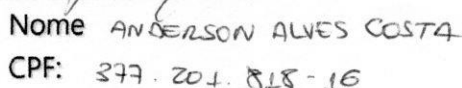 Nome ANDERSON ALVES COSTA
CPF: 377.201.818-16